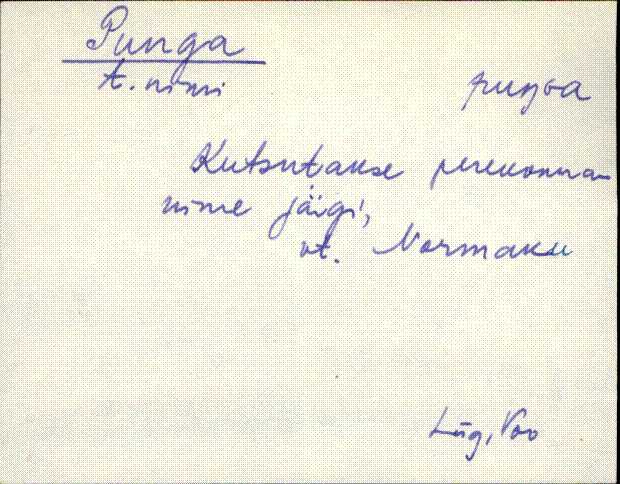 Punga
t. nimi
puŋGa
Kutsutakse perekonna-
nime järgi,
vt. Normaku
Lüg, Voo